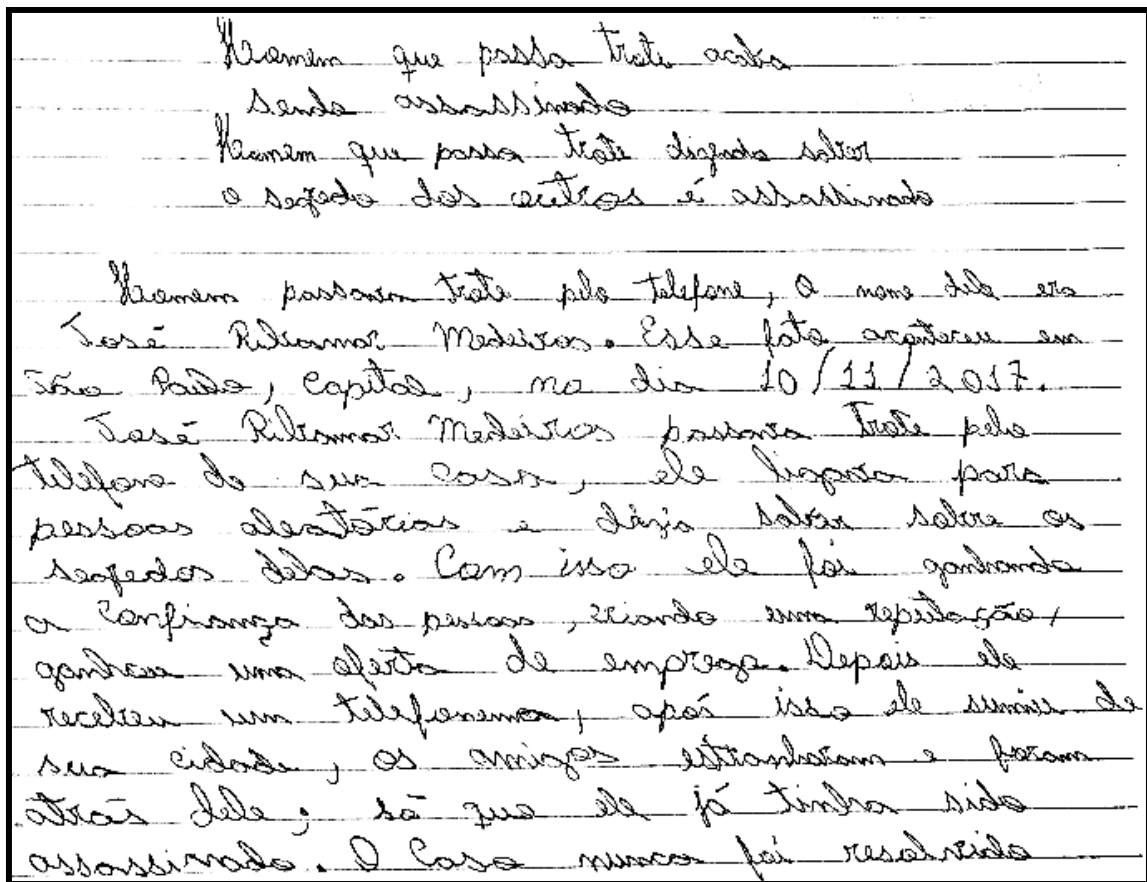 Homem que passa trote acaba
sendo assassinado
Homem que passa trote dizendo saber
o segredo dos outros é assassinado
Homem passavam trote pelo telefone, O nome dele era
José Ribamar Medeiros. Esse fato aconteceu em
São Paulo, Capital, no dia 10/11/2017.
José Ribamar Medeiros passava trote pelo
telefone de sua casa, ele ligava para
pessoas aleatórias e dizia saber sobre os
segredos delas. Com isso ele foi ganhando
a confiança das pessoas, criando uma reputação,
ganhou uma oferta de emprego. Depois ele
recebeu um telefonema, após isso ele sumiu de
sua cidade, os amigos estranharam e foram
atrás dele; só que ele já tinha sido
assassinado. O Caso nunca foi resolvido